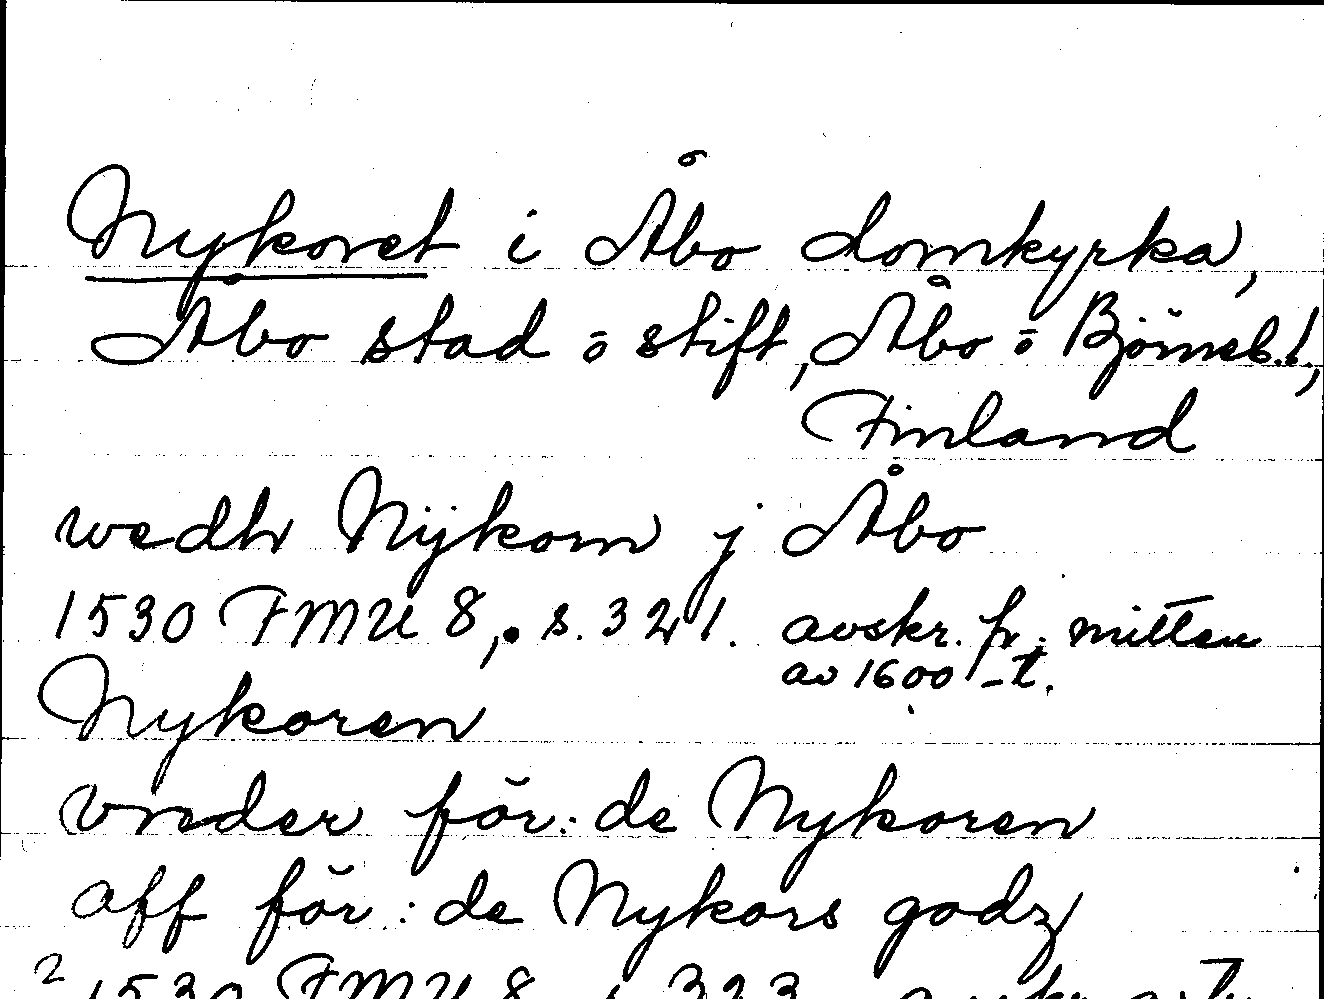 Nykoret i Åbo domkyrka,
Åbo stad o stift, Åbo o Björneb.l.,
Finland
wedh Nÿkorn j Åbo
1530 FMU 8, s. 321. avskr. fr. mitten
av 1600-t.
Nykoren
vnder för:de Nykoren
aff för:de Nykors godz
2 1530 FMU 8 s. 323